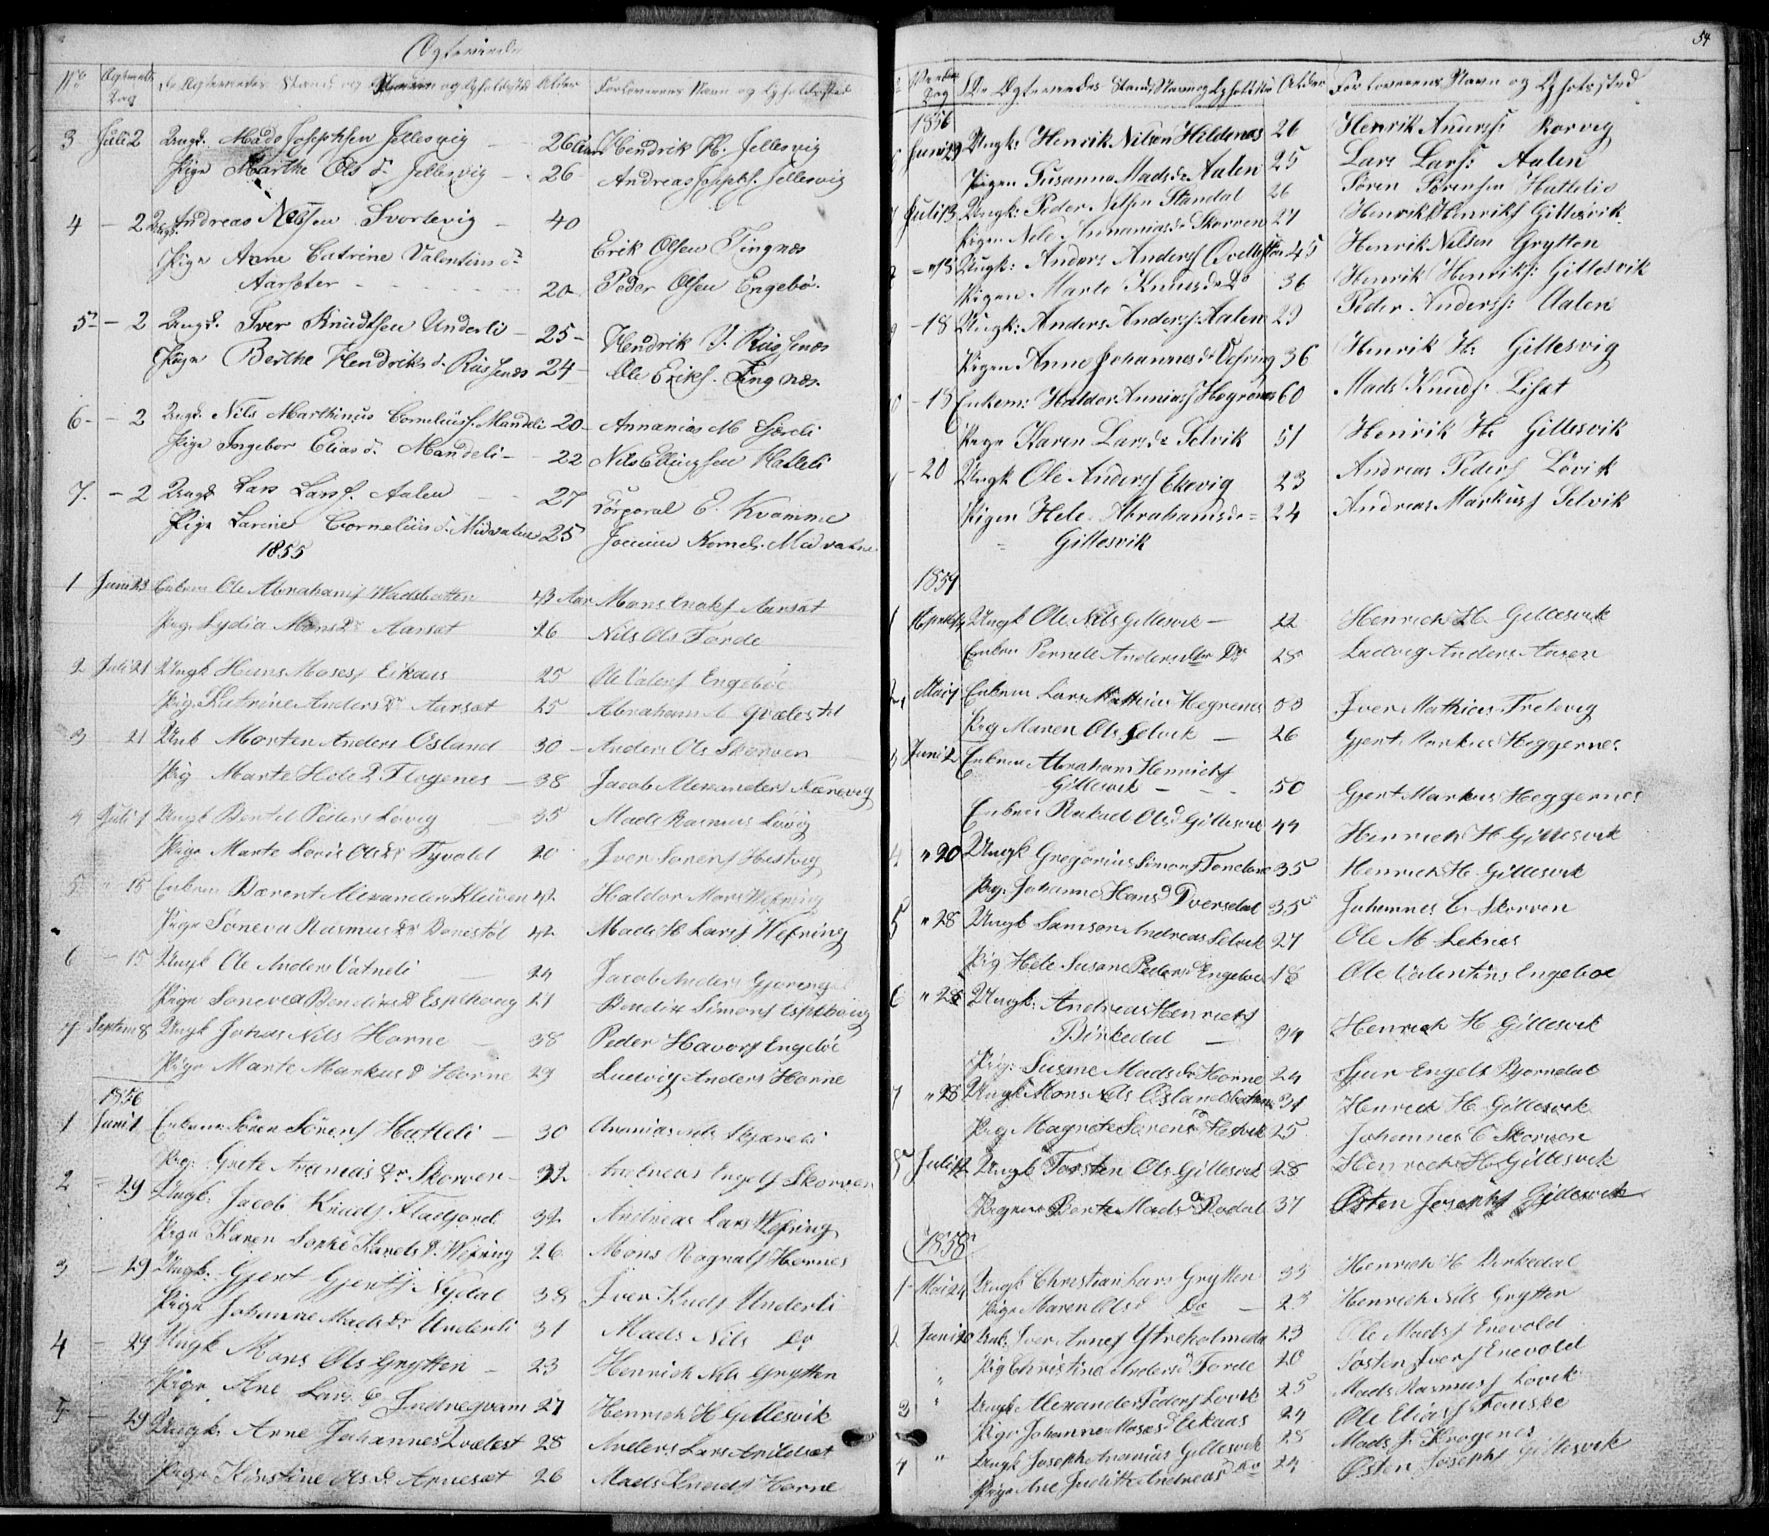 Ægteviede
No Ægtevielses Dag De Ægteviedes Stand og Navne og Opholdssted Alder Forlovernes Navn og Opholdssted
3 Juli 2 Ungk. Mads Josephsen Jellesvig 26 Aar Hendrik H. Jellesvig
Pige Marthe Ols d. Jellesvig 26 Andreas Josephs. Jellesvig
4 - 2 Ungk. Andreas Nilssen Svortevig 40
Pige Anne Catrine Valentins d. Erik Olsen Tingnæs
Aarseter 20 Peder Olsen Engebö.
5 - 2 Ungk. Iver Knudtsen Underli 25 Hendrik J. Rissenæs
Pige Berthe Hendriks d. Rissenæs 24 Ole Eriks. Tingnæs
6 - 2 Ungk. Nils Marthinus Corneliusf. Mandeli 20 Annanias M
Pige Ingebor Elias d. Mandeli 22 Nils Ellingsen Hatleli
7. - 2 Ungk. Lars Larsf. Aalen 27 Corporal E. Kvamme
Pige Larine Cornelius d. Midvatne 25 Kornels. Midvatne
1855
1 Juni 23 Enkem Ole Abrahamsf Wadsbotten 43 Aar Mons Enoksf Aarsæt
Pige Lydia Mons Dr Aarsæt 26 Nils Ols Förde
2 Juli 21 Ungk Hans Mosesf Eikaas 25 Ole Valensf Engeböe
Pig. Katrine Anders Dr Aarsæt 25 Abraham A Qvælestel
3 - 21 Unk Morten Anders Osland 30 Anders Ols Skorven
Pig Marte Hole D Flagenes 38 Jacob Alexanders Nærevig
4 Juli 1 Ungk Bertel Peders Lövig 35 Mads Rasmus Lövig
Pige Marte Lovis Ols Dr Tyvold 20 Iver Sörensf Hestvig
5 " 15 Enkem Bærent Alexanders Kleiven 42 Haldor Mons Wefring
Pige Söneva Rasmus Dr Bonestöl 42 Mads H Larsf Wefring
6 - 15 Ungk Ole Anders Vatneli 24 Jacob Anders Gjörengel
Pige Söneva Bendix D Espehoug 21 Bendix Simonsf Espehoug
7 Septem 8 Ungk Johans Nils Horne 38 Peder Havorsf Engeböe
Pige Marte Markus D Horne 29 Ludvig Anders Horne
1856
1 Juni 1 Enkem Sören Sörensf Hatleli 30 Ananias Nils Skjæreli
Pig: Grete Ananias Dr Skorven 32 Andreas Engelsf Skorven
2 - 29 Ungk: Jacob Knudsf Fladjord 32 Andreas Lars Wefring
Pige Karen Sophie Karels D. Wefring 26 Mons Ragnalsf Hornes
3 - 29 Ungk: Gjert Gjertsf Nydal 38 Iver Knuds Underli
Pige Johanne Mads Dr Underli 31 Mads Nils Do
4 - 29 Ungk Mons Ols Grytten 23 Henrich Nils Grytten
Pige Ane Lars D Indregvam 27 Henrich H Gellesvik
5 - 29 Ungk. Arne Johannes Qvælest 28 Anders Lars
Pige Kirstine Ols D Arnesæt 26 Mads Knudsf Horne
54
Vielses Dag De Ægteviedes Stand Navn og Opholdssted Alder Forlovernes Navn og Opholdssted
1856
6 Juni 29 Ungk: Henrik Nilsen Hildenæs 26 Henrik Andersf: Rorvig
Pigen Susanna Mads Dr Aalen 25 Lars Larsf: Aalen
7 Juli 13 Ungk: Peder Nilsen Standal 26 Sören Sörensen Hatlelie
Pigen Nele Annanias Dr Skorven 27 Henrik Henriksf Gillesvik
8 - 13 Ungk: Anders Andersf 45 Henrik Nilsen Grytten
Pigen Marte Knuds Dr Do 36 Henrik Henriksf: Gillesvik
9 - 18 Ungk: Anders Andersf. Aalen 23 Peder Andersf: Aalen
Pigen Anne Johannes Dr Vefring 36 Henrik H: Gillesvig
10 - 15 Enkem: Haldor Anniasf Hegrenæs 60 Mads Knudsf: Lisæt
Pige Karen Lars Dr Selvik 51 Henrik H: Gillesvik
- 20 Ungk Ole Andersf Ekevig 23 Andreas Pedersf Lövik
Pigen Hele Abrahams dr 24 Andreas Markusf Selvik
Gillesvik
1857
1 April Ungk Ole Nils Gillesvik 22 Henrich H. Gellesvik
Enken Pernele Anders Dr Do 28 Ludvig Anders Aasen
2 Mai Enkem Lars Mathias Hegrenes 53 Iver Mathias Tretevig
Pig Maren Ols Selvik 26 Gjert Markus Heggernes
3 Juni Enkem Abraham Henrichsf
Gillesvik 50 Gjert Markus Heggernes
Enken Rakael Ols d Gillesvik 44 Henrich H Gillesvik
4 " 20 Ungk Gregorius Simonsf 35 Henrich H Gillesvik
Pig. Johanne Hans d Tversdal 35 Johannes C. Skorven
5 " 28 Ungk Samson Andreas Selvik 27 Ole M Leknes
Pig Hele Susane Peders Engeboe 18 Ole Valentins Engeboe
6 " 28 Ungk. Andreas Henrichsf
Birkedal 34 Henrich H Gillesvik
Pig: Susane Mads Dr Horne 24 Sjur Engels Bjorndal
7 " 28 Ungk Mons Nils Oslandsbotnen 31 Henrich H Gillesvik
Pig Magrete Sörens D Hestvik 25 Johannes C Skorven
8 Juli 12 Ungk Torsten Ols Gillesvik 28 Henrich H Gillesvik
Pigen Berte Mads D Rodal 37 Østen Josephsf Gjillesvik
1858
1 Mai 24 Ungk Christian Lars Grytten 35 Henrich H Birkedal
Pige Maren Ols d Do 23 Henrich Nils Grytten
2 Juni 20 Unk: Iver Arnesf Ytreholmedal 23 Ole Madsf Enevold
" Pig Christine Anders D Förde 20 Tosten Iversf Enevold
3 " Ungk Alexander Pedersf Lovik 25 Mads Rasmusf Lovik
Pige Johanne Moses D Eekaas 24 Ole Eliasf Fauske
4 " Ungk Joseph Ananias Gillesvik 28 Mads J. Krogenes
Pige Ane Judithe Andreas D Do 24 Østen Josephsf Gillesvik